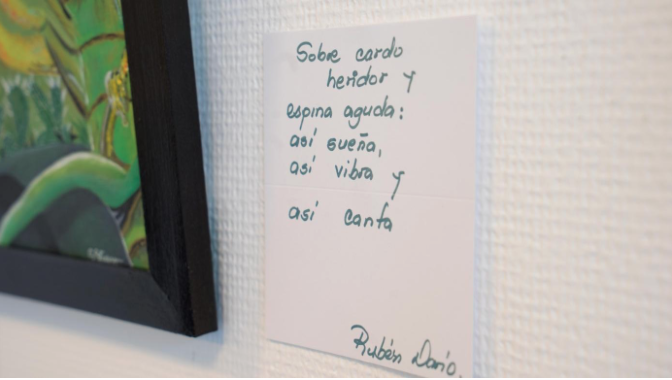 Sobre cardo
heridor y
espina aguda:
así sueña,
así vibra y
así canta
Rubén Darío.